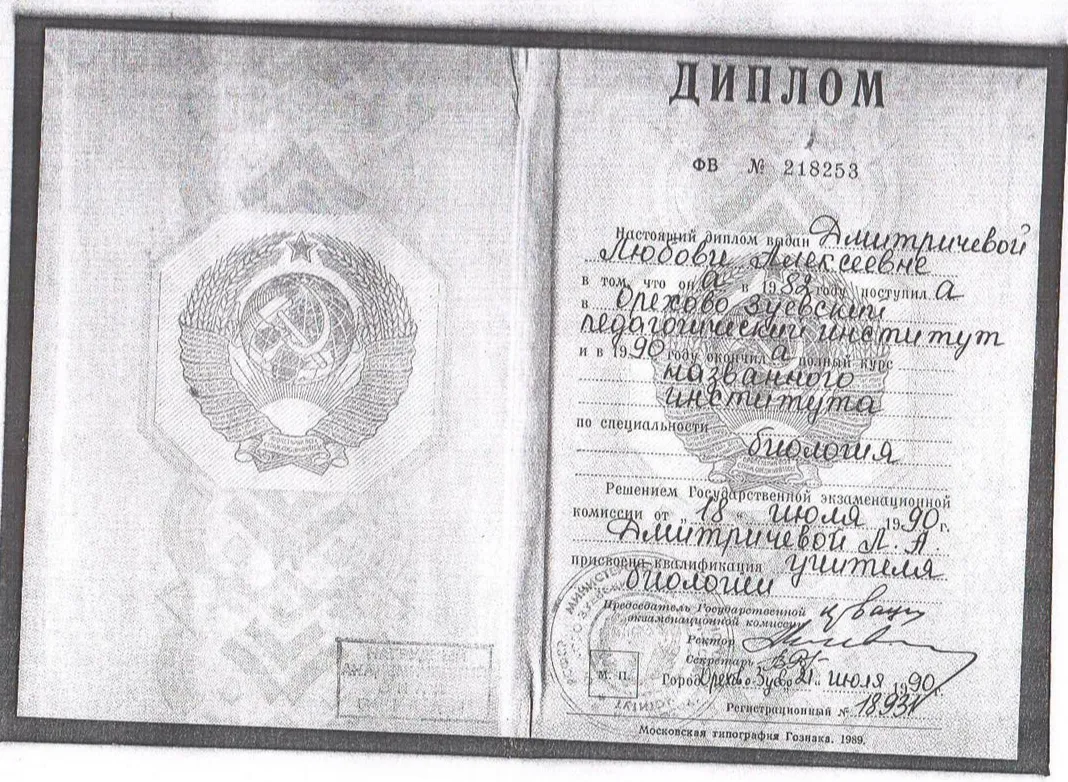 ДИПЛОМ
ФВ № 218253
Настоящий диплом выдан Дмитричевой
Любови Алексеевне
в том, что она в 1982 году поступила
в Орехово Зуевский
педагогический институт
и в 1990 году окончила полный курс
названного
института
по специальности
биология
Решением Государственной экзаменационной
комиссии от „18“ июля 1990 г.
Дмитричевой Л. А
присвоена квалификация учителя
биологии
Председатель Государственной
экзаменационной комиссии
Ректор
Секретарь
М. П.
Город Орехово-Зуево 21 июля 1990 г.
Регистрационный №
Московская типография Гознака. 1989.